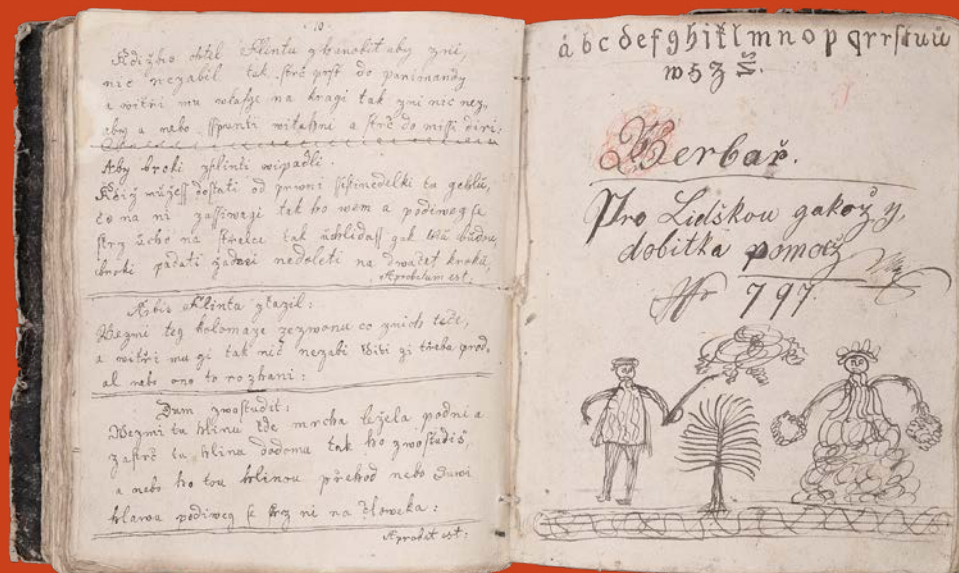 10.
Kdižbo chtel Flintu zhanobit aby zni,
nic nezabil tak strč prst do
a witři mu wlasge na kragi tak zni nic nez,
aby a nebo sspunti witahni a strč do missi diri:
Aby broki zflinti wipadli.
dostati od prwni ta gehlu,
čo na ni zassiwagi tak ho wem a podiweg se
strz ucho na střelce tak uhlidass gak budou
broki padati nedoleti na dwacet kroku,
Aprobatum est:
Flinta zkazil:
Wezmi teg kolomaze zezwonu co znich teče,
a witři mu gi tak nič nezabi gi třeba prod,
al nebo ono to rozhani:
Dum zwostudit:
Wezmi tu hlinu kde mrcha ležela podni a
zastrč tu hlinu dodomu tak ho zwostudiš,
a nebo ho tou hlinou přehod nebo
hlawu podiweg se skrz ni na človeka:
Aprobat est:
á b c d e f g h i k l m n o p q r r s t u ů
w 5 3
Herbař.
Pro Lidskou gakož y,
dobitka pomocz
No 797.